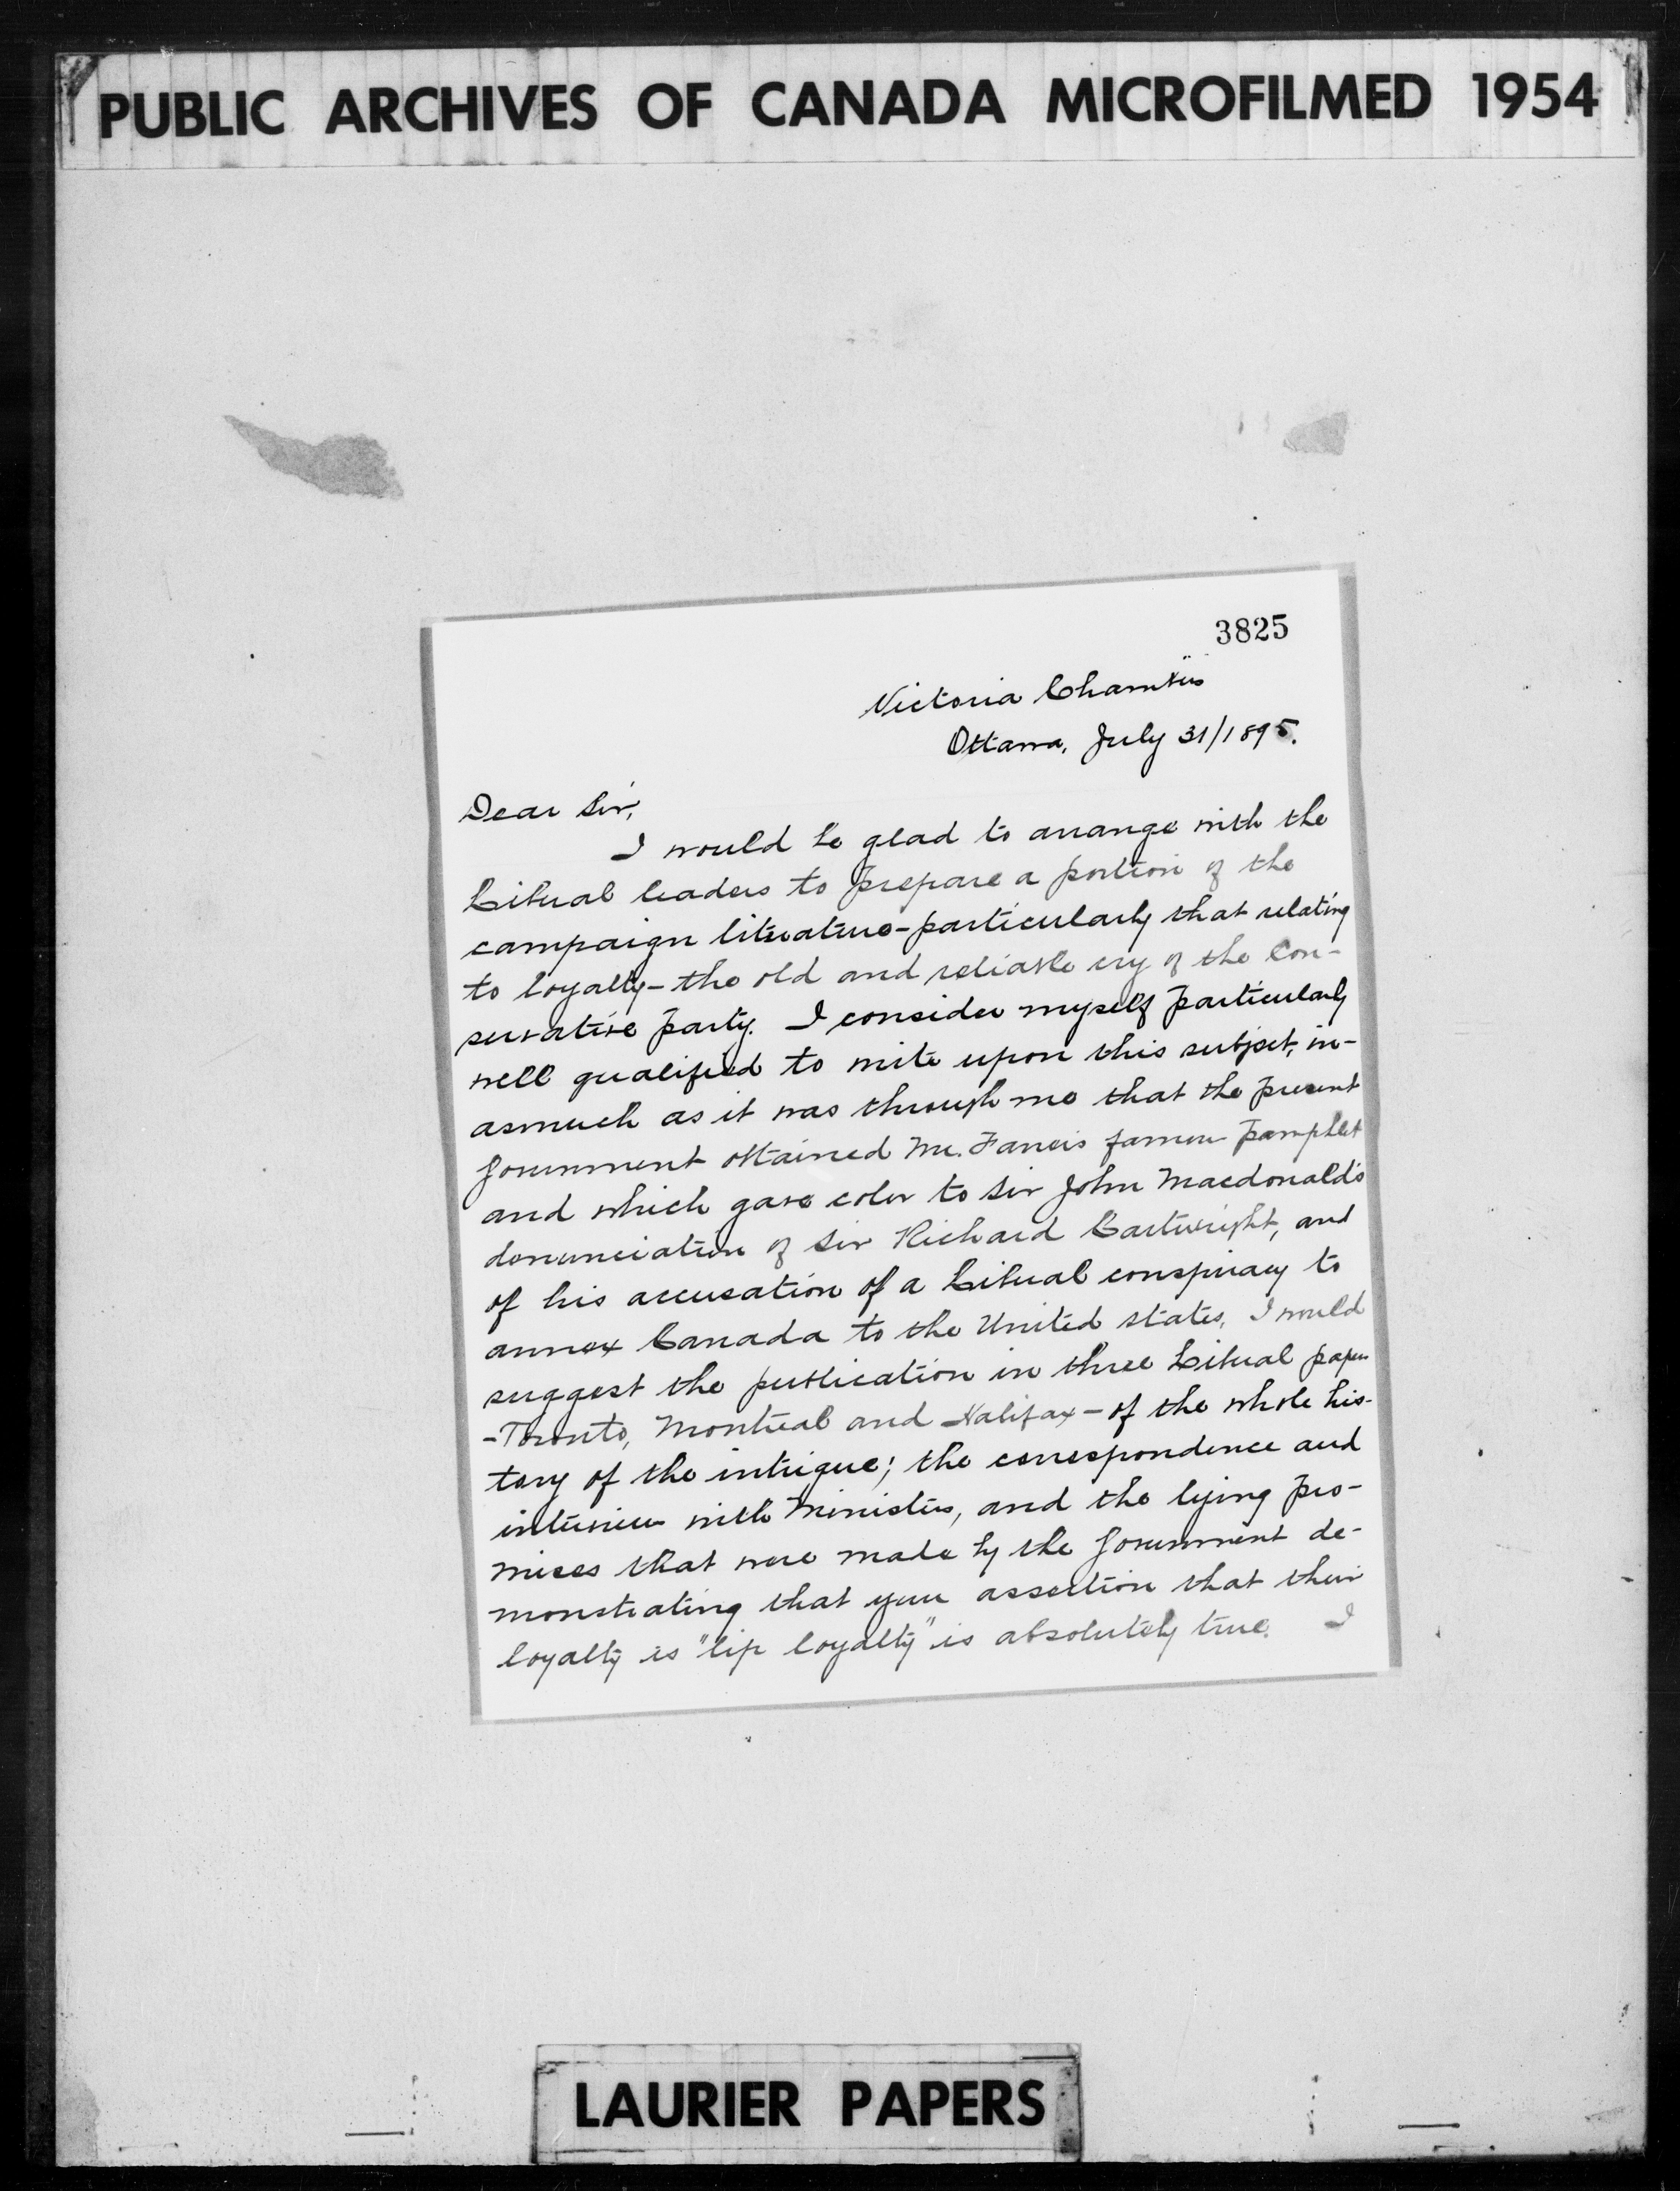 PUBLIC ARCHIVES OF CANADA MICROFILMED 1954
3825
Victoria Chambers
Ottawa, July 31/1895.
Dear Sir,
I would be glad to arrange with the
Liberal leaders to prepare a portion of the
campaign literature - particularly that relating
to loyalty - the old and reliable cry of the Con-
servative party. I consider myself particularly
well qualified to write upon this subject, in-
asmuch as it was through me that the present
Government obtained Mr. Farrer's famous pamphlet
and which gave color to Sir John Macdonald's
denunciation of Sir Richard Cartwright, and
of his accusation of a Liberal conspiracy to
annex Canada to the United States. I would
suggest the publication in three Liberal papers
- Toronto, Montreal and Halifax - of the whole his-
tory of the intrigue; the correspondence and
interviews with Ministers, and the lying pro-
mises that were made by the Government de-
monstrating that your assertion that their
loyalty is "lip loyalty" is absolutely true. I
LAURIER PAPERS